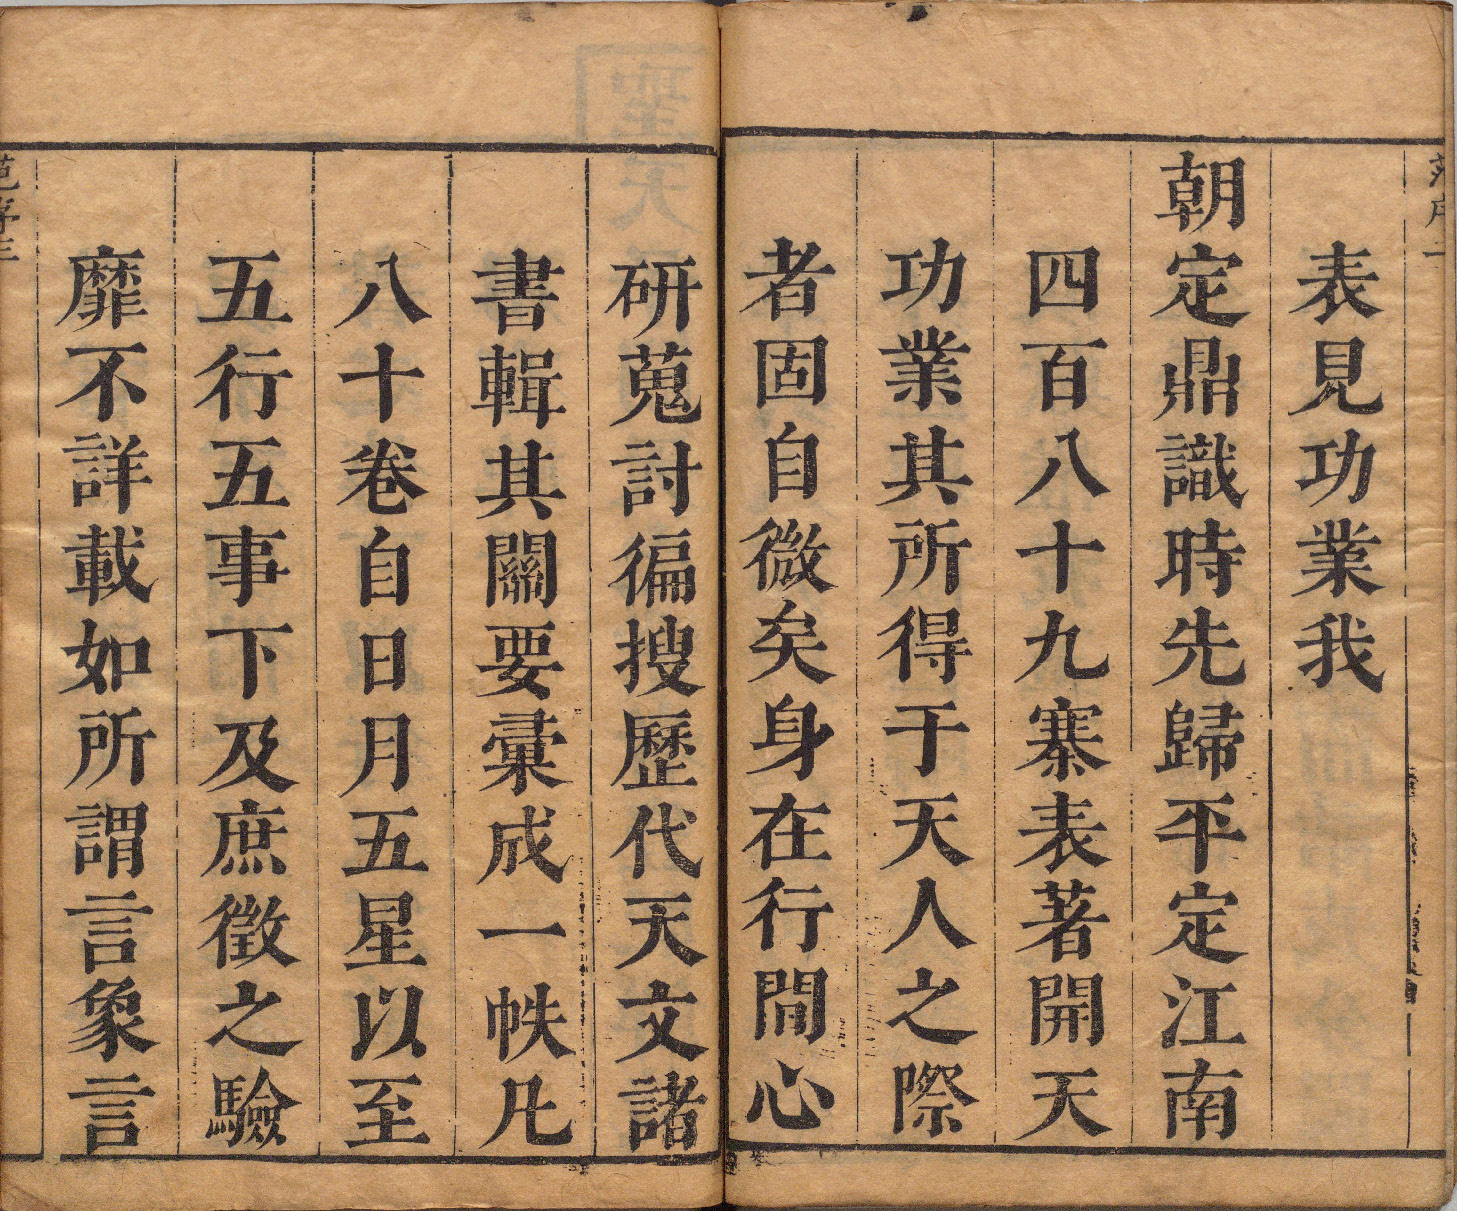 表見功業我
朝定鼎識時先歸平定江南
四百八十九寨表著開天
功業其所得于天人之際
者固自微矣身在行間心
研蒐討徧搜歷代天文諸
書輯其關要彙成一帙凡
八十卷自日月五星以至
五行五事下及庶徵之驗
靡不詳載如所謂言象言